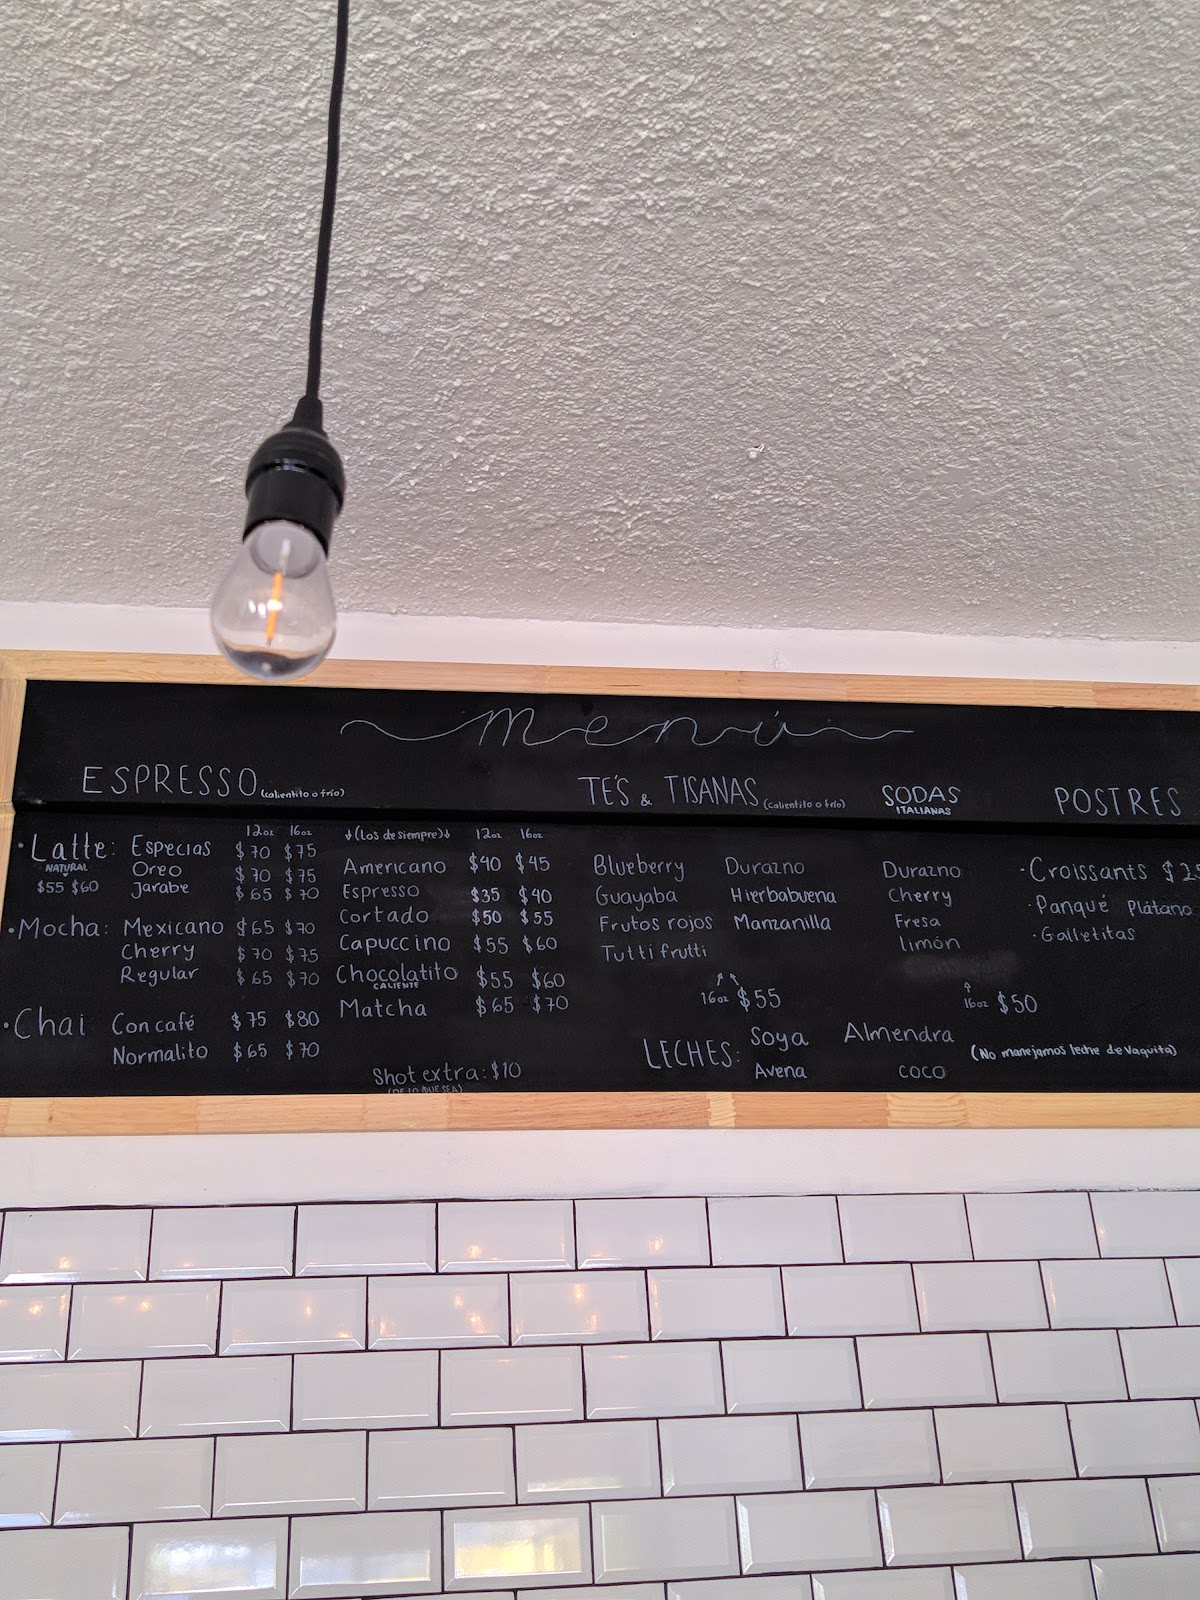 menú
ESPRESSO (calientito o frío)
12oz 16oz
Latte: Especias $70 $75
NATURAL
Oreo $70 $75
$55 $60
Jarabe $65 $70
Mocha: Mexicano $65 $70
Cherry $70 $75
Regular $65 $70
Chai Con café $75 $80
Normalito $65 $70
(Los de siempre) 12oz 16oz
Americano $40 $45
Espresso $35 $40
Cortado $50 $55
Capuccino $55 $60
Chocolatito $55 $60
CALIENTE
Matcha $65 $70
Shot extra: $10
(DE LO QUE SEA)
TE'S & TISANAS (calientito o frío)
Blueberry Durazno
Guayaba Hierbabuena
Frutos rojos Manzanilla
Tutti frutti
16oz $55
SODAS
ITALIANAS
Durazno
Cherry
Fresa
limón
16oz $50
POSTRES
Croissants $25
Panqué Plátano
Galletitas
LECHES: Soya Almendra (No manejamos leche de vaquita)
Avena coco